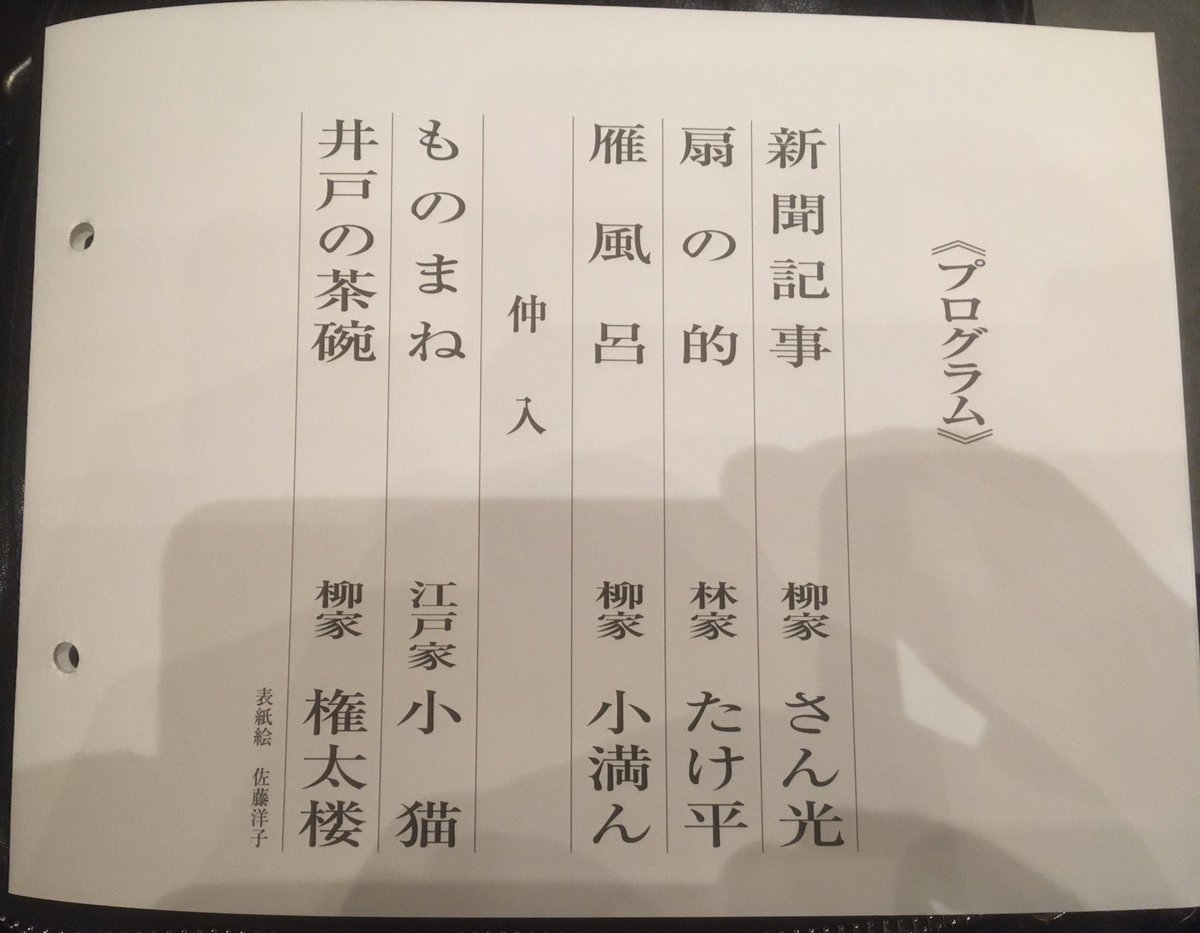 《プログラム》
新聞記事 柳家 さん光
扇の的 林家 たけ平
雁風呂 柳家 小満ん
仲入
ものまね 江戸家 小猫
井戸の茶碗 柳家 権太楼
表紙絵 佐藤洋子